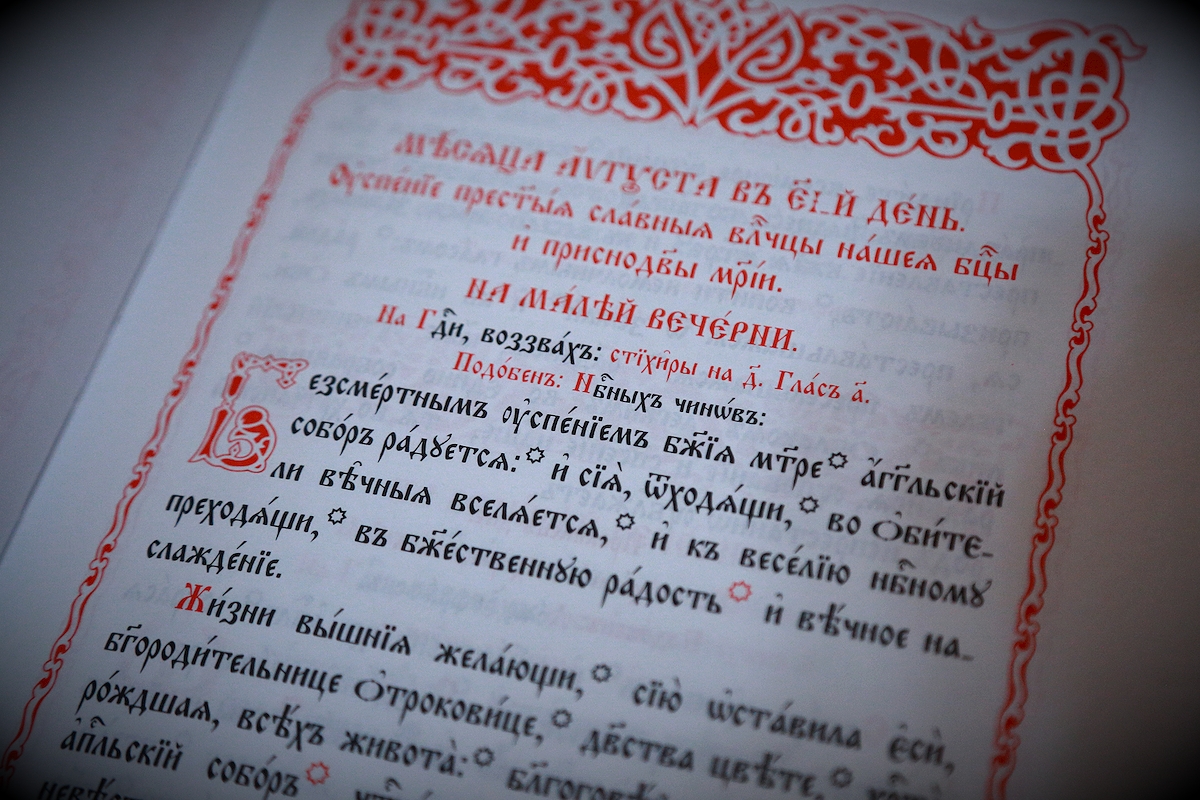 МѢ́СѦЦА А҆́ѴГꙊСТА ВЪ Є҃І-Й ДЕ́НЬ.
Оу҆спе́нїе прест҃ы́ѧ сла́вныѧ влⷣчцы на́шеѧ бцⷣы
и҆ приснодв҃ы мр҃і́и.
НА МА́ЛѢЙ ВЕЧЕ́РНИ.
На Гдⷭ҇и, воззва́хъ: стїхи̑ры на д҃. Гла́съ а҃.
Подо́бенъ: Нбⷭ҇ныхъ чинѡ́въ:
Безсме́ртнымъ ᲂу҆спе́нїемъ бж҃їѧ мт҃ре꙳ а҆́гг҃льскїй
собо́ръ ра́дꙋетсѧ:꙳ и҆ сїѧ̀, ѿходѧ́щи,꙳ во Ѻ҆би́те-
ли вѣ̑чныѧ вселѧ́етсѧ,꙳ и҆ къ весе́лїю нбⷭ҇номꙋ
преходѧ́щи,꙳ въ бж҃е́ственнꙋю ра́дость꙳ и҆ вѣ́чное на-
слажде́нїе.
Жи́зни вы́шнїѧ жела́ющи,꙳ сїю̀ ѡ҆ста́вила є҆сѝ,
бг҃ороди́тельнице Ѻ҆трокови́це,꙳ дв҃ства цвѣ́те,꙳
ро́ждшаѧ, всѣ́хъ живота̀:꙳
а҆пⷭ҇льскїй собо́ръ꙳